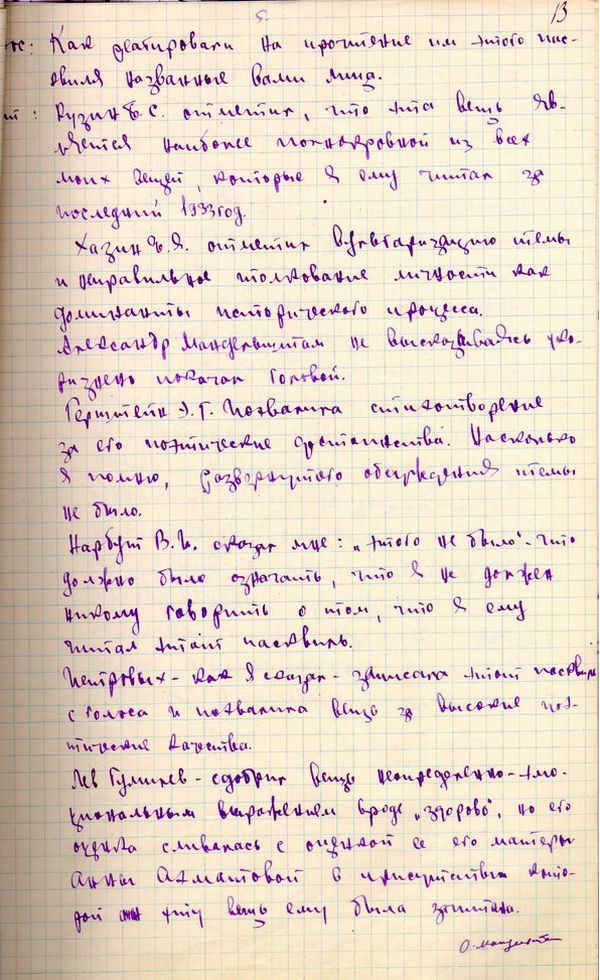 5.
13
ос: Как реагировали на прочтение им этого пас-
квиля названные вами лица.
от: Кузин Б.С. отметил, что эта вещь яв-
ляется наиболее полнокровной из всех
моих вещей, которые я ему читал за
последний 1933 год.
Хазин Е.Я. отметил вульгаризацию темы
и неправильное толкование личности как
доминанты исторического процесса.
Александр Мандельштам не высказываясь уко-
ризнено покачал головой.
Герштейн Э.Г. похвалила стихотворение
за его поэтические достоинства. Насколько
я помню, развернутого обсуждения темы
не было.
Нарбут В.И. сказал мне: „этого не было". что
должно было означать, что я не должен
никому говорить о том, что я ему
читал этот пасквиль.
Петровых - как я сказал - записала этот пасквиль
с голоса и похвалила вещь за высокие поэ-
тические качества.
Лев Гумилев - одобрил вещь неопределенно-эмо-
циональным выражением вроде „здорово", но его
оценка сливалась с оценкой ее его матери
Анны Ахматовой в присутствии кото-
рой эту вещь ему была зачитана.
О. Мандельштам